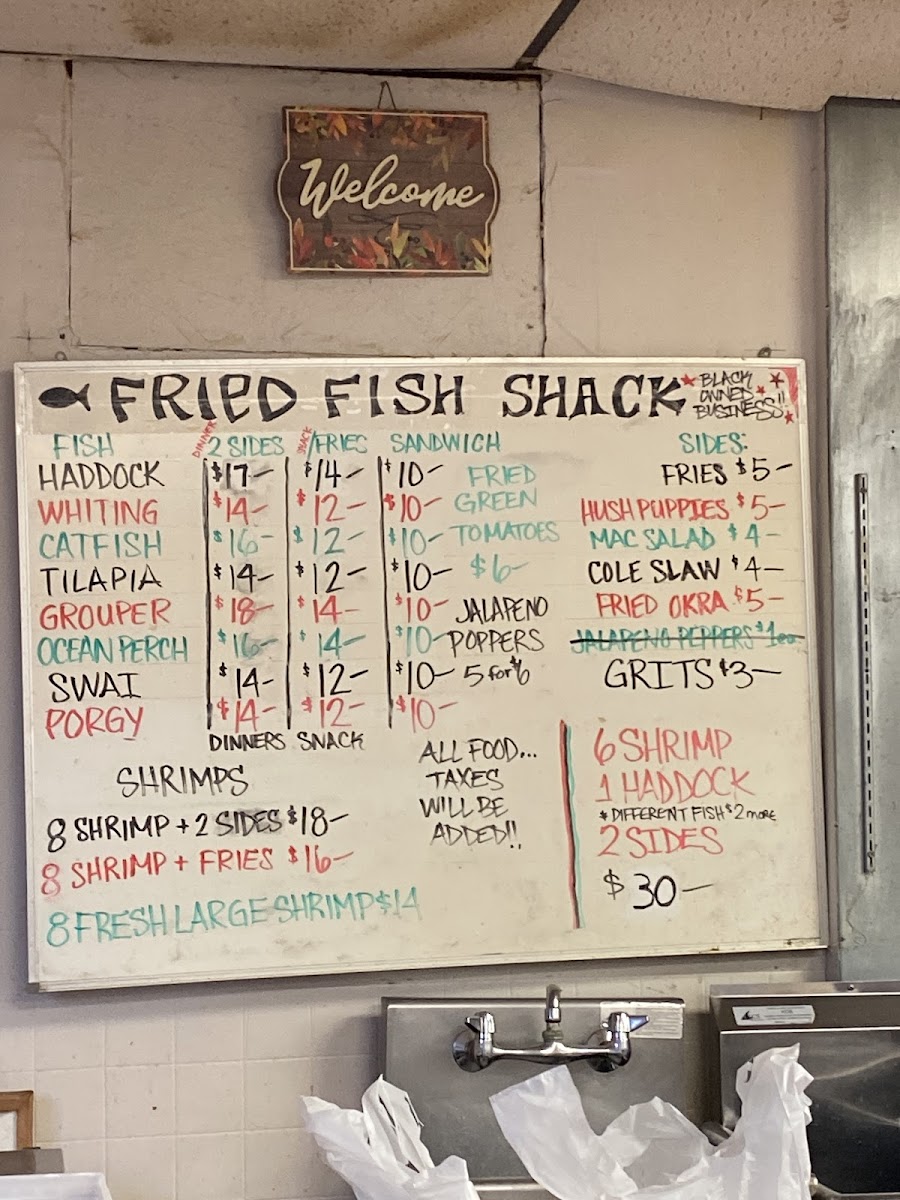 Welcome
FRIED FISH SHACK
BLACK
OWNED
BUSINESS!!
FISH DINNER 2 SIDES SNACK /FRIES SANDWICH
HADDOCK $17- $14- $10-
WHITING $14- $12- $10-
CATFISH $16- $12- $10-
TILAPIA $14- $12- $10-
GROUPER $18- $14- $10-
OCEAN PERCH $16- $14- $10-
SWAI $14- $12- $10-
PORGY $14- $12- $10-
DINNERS SNACK
FRIED
GREEN
TOMATOES
$6-
JALAPENO
POPPERS
5 for $6
SIDES:
FRIES $5-
HUSH PUPPIES $5-
MAC SALAD $4-
COLE SLAW $4-
FRIED OKRA $5-
JALAPENO PEPPERS $1ea.
GRITS $3-
SHRIMPS
8 SHRIMP + 2 SIDES $18-
8 SHRIMP + FRIES $16-
8 FRESH LARGE SHRIMP $14
ALL FOOD...
TAXES
WILL BE
ADDED!!
6 SHRIMP
1 HADDOCK
* DIFFERENT FISH $2 more
2 SIDES
$30-